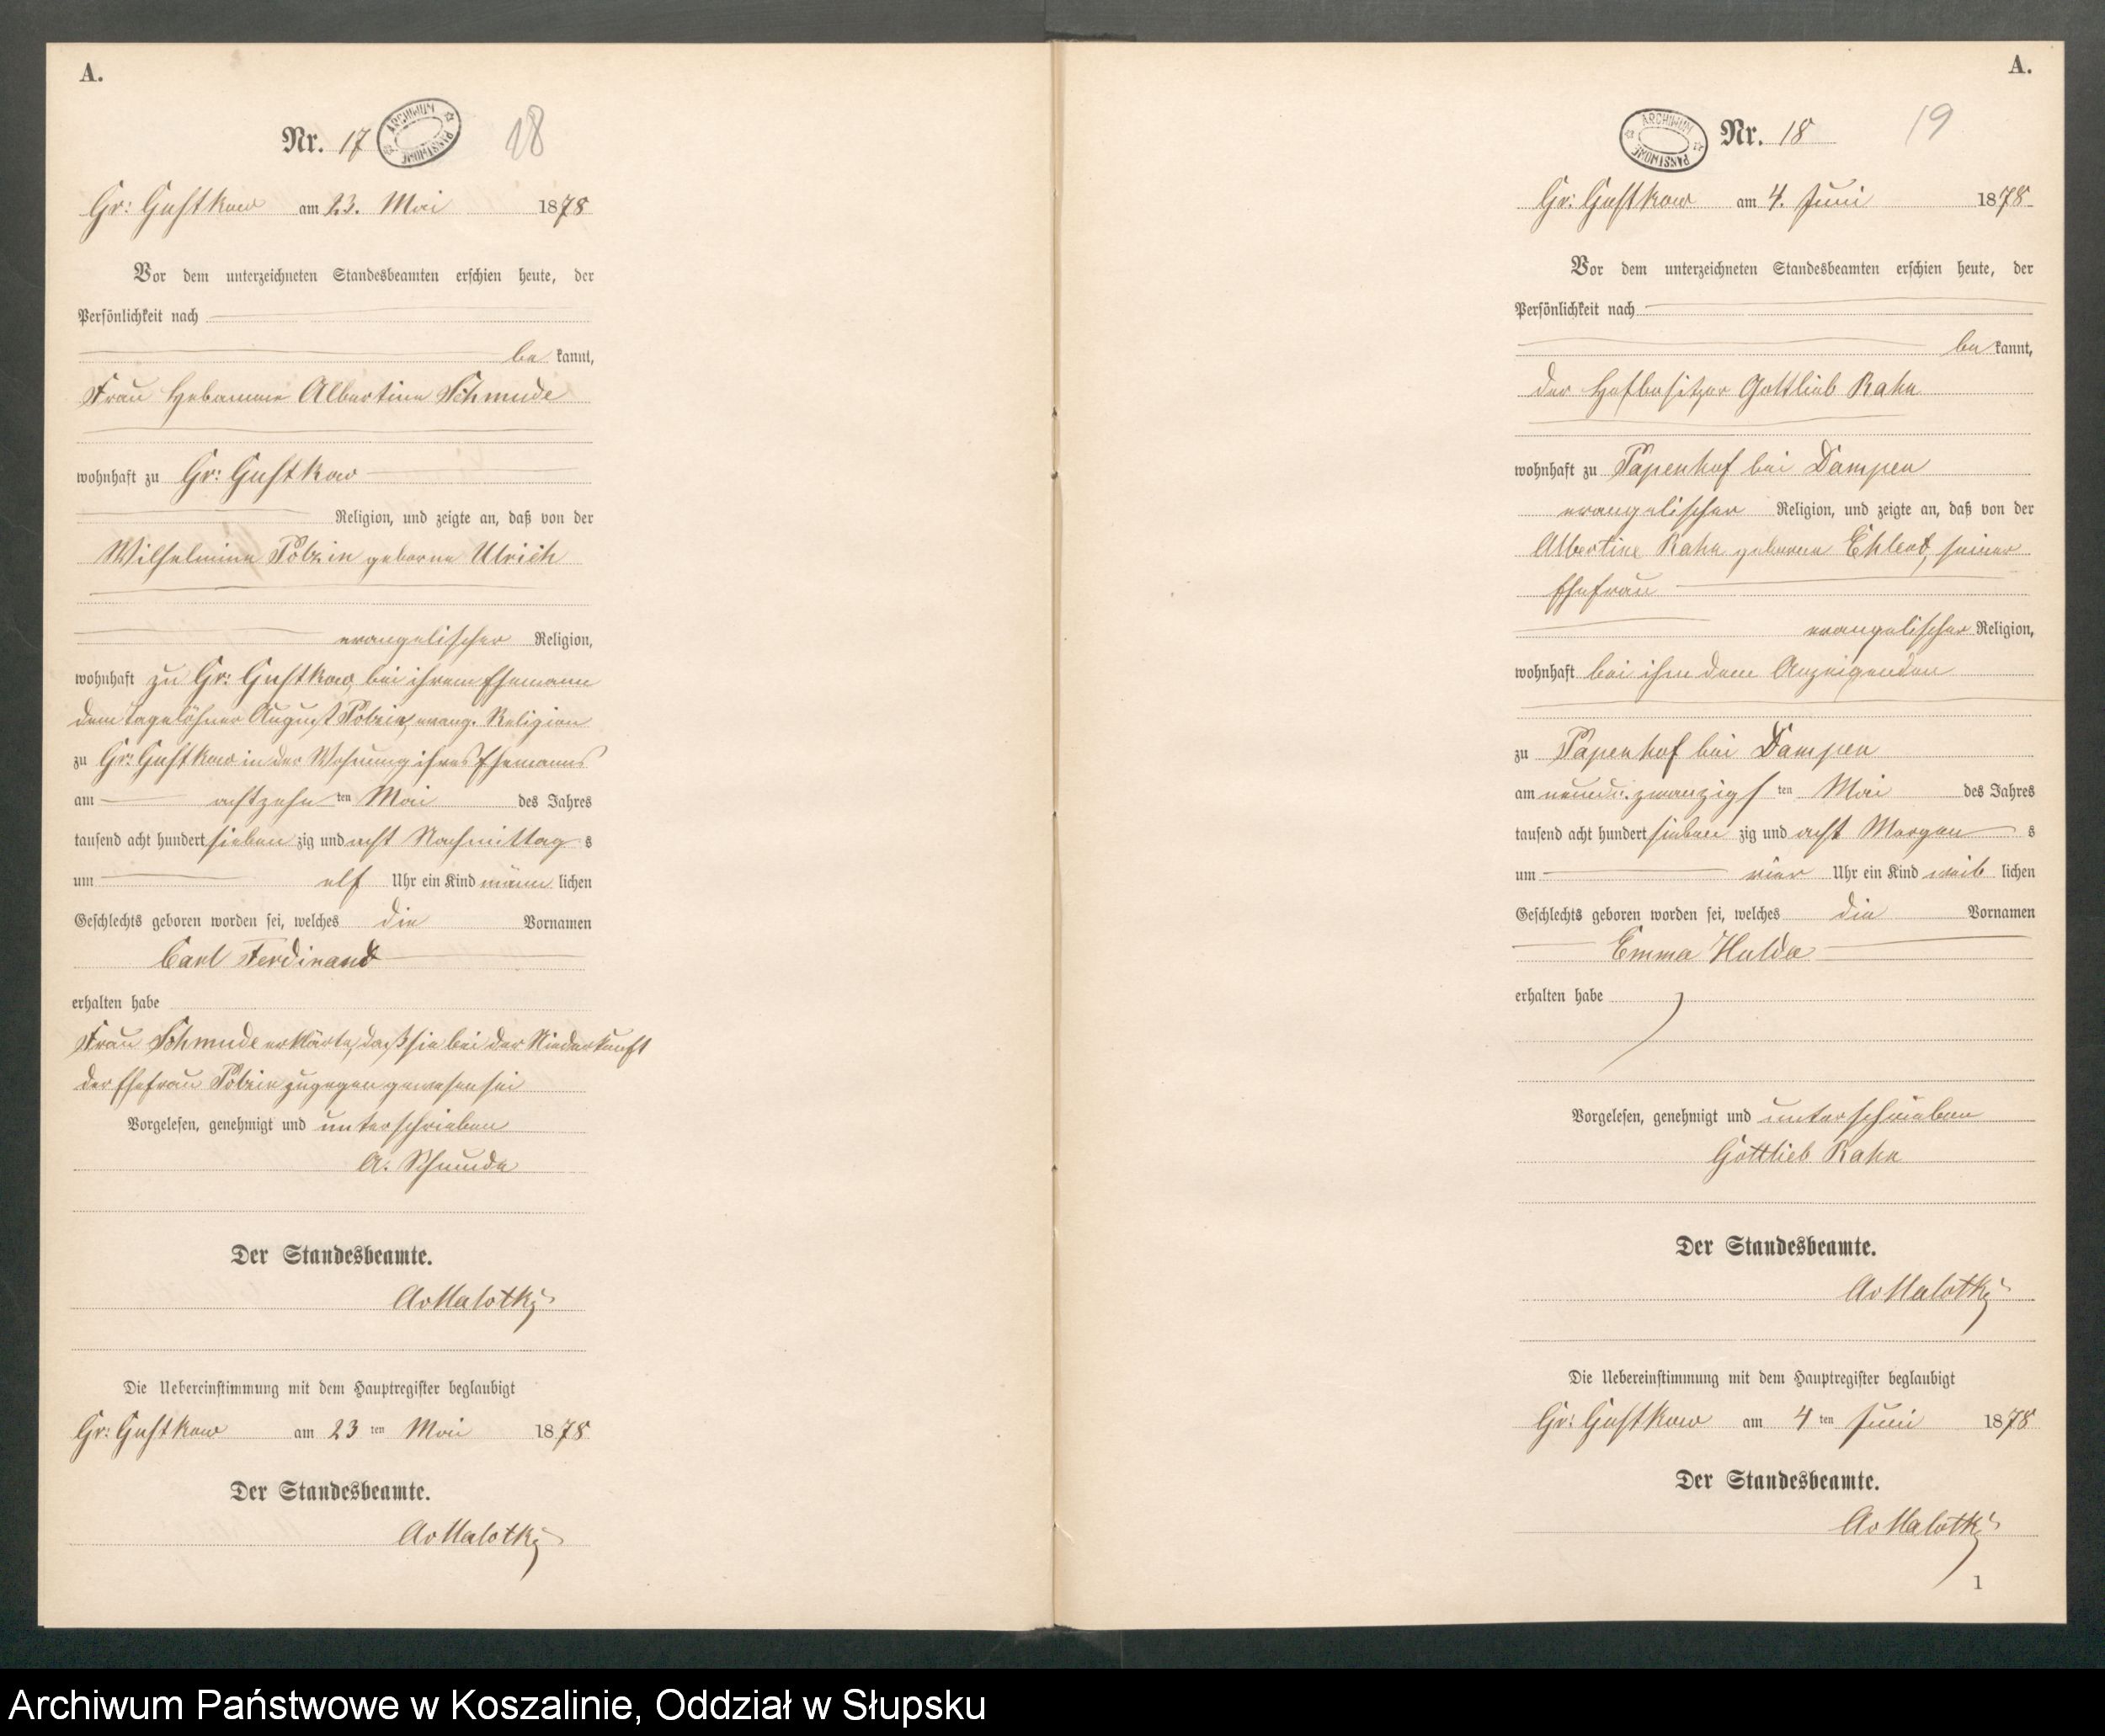 A.
Nr. 17
ARCHIWUM PAŃSTWOWE
18
Gr: Gustkow am 23. Mai 1878
Vor dem unterzeichneten Standesbeamten erschien heute, der
Persönlichkeit nach
be kannt,
Frau Hebamme Albertine Schmude
wohnhaft zu Gr: Gustkow
Religion, und zeigte an, daß von der
Wilhelmine Polzin geborne Ulrich
evangelischer Religion,
wohnhaft zu Gr: Gustkow, bei ihrem Ehemann
dem Tagelöhner August Polzin, evang. Religion
zu Gr: Gustkow in der Wohnung ihres Ehemanns
am achtzehn ten Mai des Jahres
tausend acht hundert sieben zig und acht Nachmittag s
um elf Uhr ein Kind männ lichen
Geschlechts geboren worden sei, welches die Vornamen
Carl Ferdinand
erhalten habe
Frau Schmude erklärte, daß sie bei der Niederkunft
der Ehefrau Polzin zugegen gewesen sei
Vorgelesen, genehmigt und unterschrieben
A. Schmude
Der Standesbeamte.
AvMalotky
Die Uebereinstimmung mit dem Hauptregister beglaubigt
Gr: Gustkow am 23 ten Mai 1878
Der Standesbeamte.
AvMalotky
A.
ARCHIWUM PAŃSTWOWE
Nr. 18
19
Gr: Gustkow am 4. Juni 1878
Vor dem unterzeichneten Standesbeamten erschien heute, der
Persönlichkeit nach
be kannt,
der Hofbesitzer Gottlieb Rahn
wohnhaft zu Papenhof bei Dampen
evangelischer Religion, und zeigte an, daß von der
Albertine Rahn geborne Ehlert, seiner
Ehefrau
evangelischer Religion,
wohnhaft bei ihm dem Anzeigenden
zu Papenhof bei Dampen
am neunu. zwanzigs ten Mai des Jahres
tausend acht hundert sieben zig und acht Morgen s
um vier Uhr ein Kind weib lichen
Geschlechts geboren worden sei, welches die Vornamen
Emma Hulda
erhalten habe
Vorgelesen, genehmigt und unterschrieben
Gottlieb Rahn
Der Standesbeamte.
AvMalotky
Die Uebereinstimmung mit dem Hauptregister beglaubigt
Gr: Gustkow am 4 ten Juni 1878
Der Standesbeamte.
AvMalotky
1
Archiwum Państwowe w Koszalinie, Oddział w Słupsku